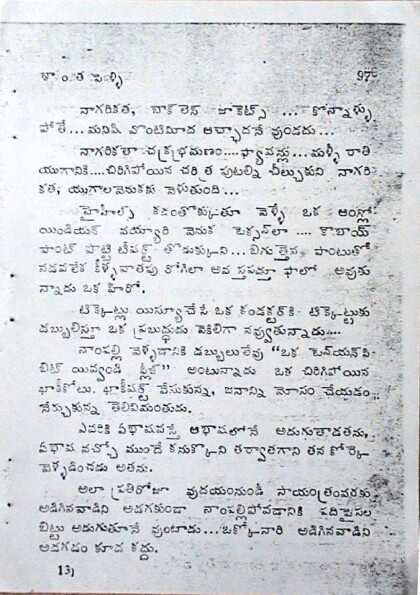 శాంత పెళ్ళి 97
నాగరికత, బాక్ లెస్ జాకెట్స్... కొన్నాళ్ళు
పోతే... మనిషి వొంటిమీద ఆచ్ఛాదనే వుండదు...
నాగరికతా చక్రభ్రమణం....ఫ్యాషన్లు... మళ్ళీ రాతి
యుగానికి....చిరిగిపోయిన చరిత్ర పుటల్ని చీల్చుకుని నాగరి
కత, యుగాలవెనుకకు వెళుతుంది...
హైహీల్స్ కదంతొక్కుతూ వెళ్ళే ఒక ఆంగ్లో
యిండియన్ వయ్యారి వెనుక ... కౌబాయ్
పాంట్ పొట్టి టీషర్ట్ తొడుక్కుని... బిగుత్తైన పాంటుతో
నడవలేక కీళ్ళవాతపు రోగిలా అవస్తపడ్తూ ఫాలో అవుకు
న్నాడు ఒక హీరో.
టిక్కెట్లు యిస్యూచేసే ఒక కండక్టర్‌కి టిక్కెట్టుకు
డబ్బులిస్తూ ఒక ప్రబుద్ధుడు వెకిలిగా నవ్వుతున్నాడు...
నాంపల్లి వెళ్ళడానికి డబ్బులులేవు "ఒక టెన్‌యన్‌పి
బిట్ యివ్వండి ప్లీజ్" అంటున్నాడు ఒక చిరిగిపోయిన
ఖాకీకోటు. ఖాకీషర్ట్ వేసుకున్న, జనాన్ని మోసం చేయడం
నేర్చుకున్న తెలివిమంతుడు.
ఎవరికి ఏభాషవస్తే ఆభాషలోనే అడుగుతాడతను,
ఏభాష వచ్చో ముందే కనుక్కొని తర్వాతగాని తన కోర్కె
వెళ్లడించడు అతను.
అలా ప్రతిరోజూ వుదయంనుండి సాయంత్రంవరకు
అడిగినవాడిని అడగకుండా నాంపల్లిపోవడానికి పదిపైసల
బిట్టు అడుగుతూనే వుంటాడు...ఒక్కోసారి అడిగినవాడిని
అడగడం కూడ కద్దు.
13)